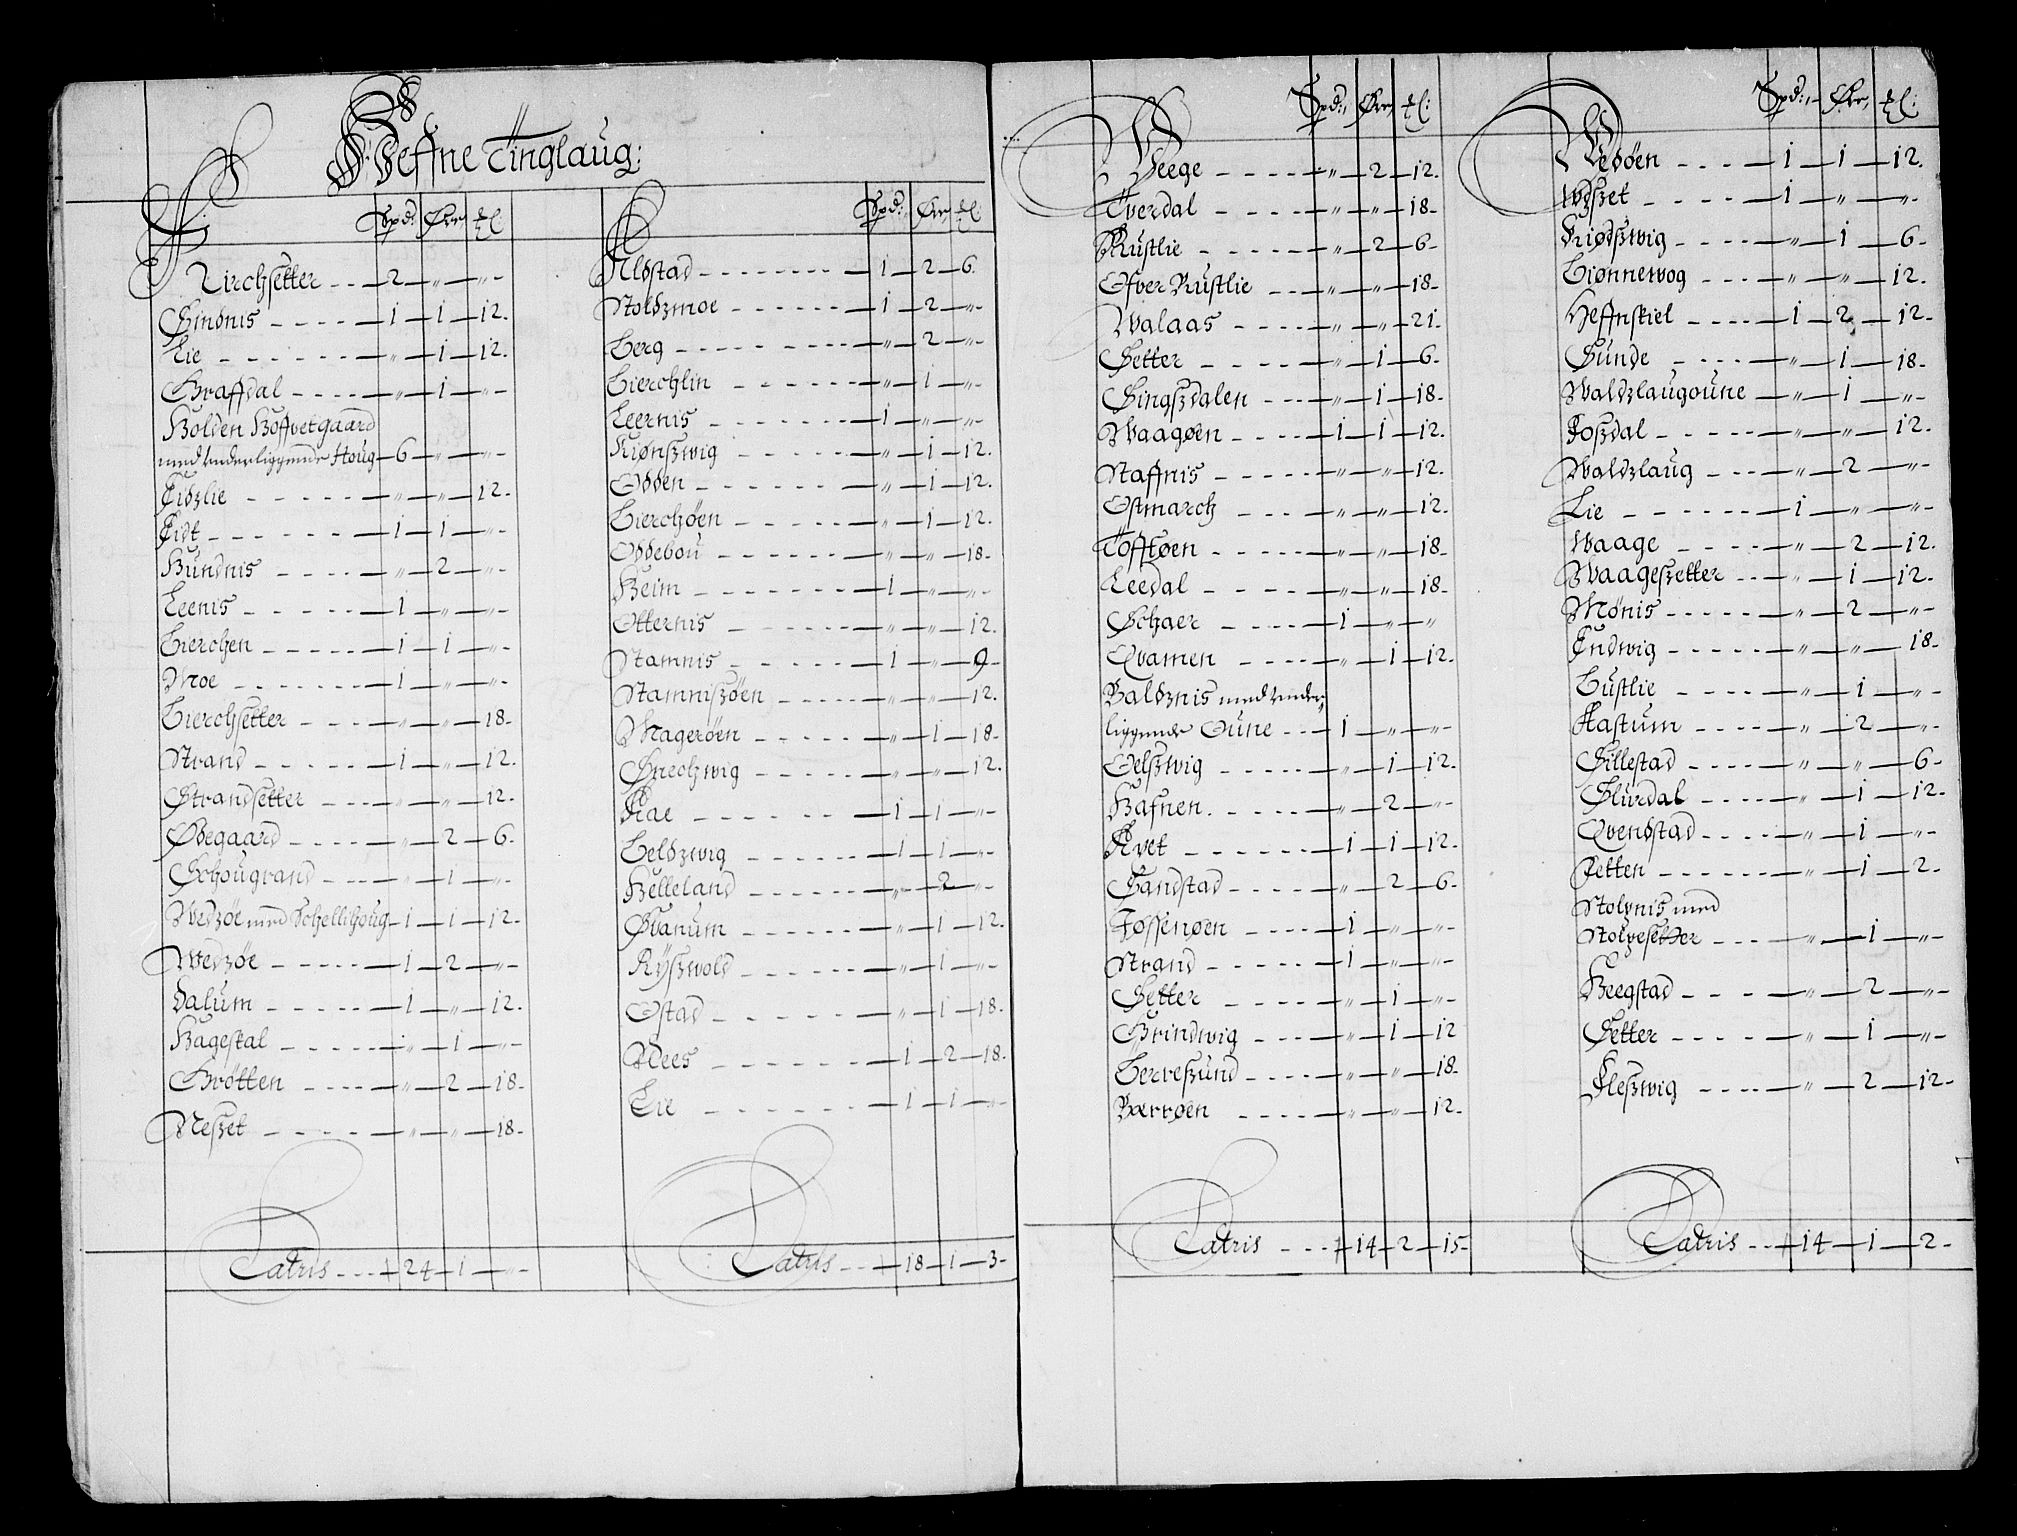 Heffne Tinglaug:
Spd: Ører, ₰l
Kirchsetter - - - 2 — „ — „ -
Sindnis - - - - - 1 — 1 — 12.
Lie - - - - - — „ — 1 — 12.
Graffdal - - - - — „ — 1 — „ -
Holden Hoffvetgaard
med underliggende Houg — 6 — „ — „ -
Eidzlie - - - - - — „ — „ — 12.
Eidt - - - - - - 1 — 1 — „ -
Hundnis - - - - — „ — 2 — „ -
Leenis - - - - - 1 — „ — „ -
Bierchen - - - - - 1 — 1 — „ -
Moe - - - - - - 1 — „ — „ -
Bierchsetter - - - - — „ — „ — 18 -
Strand - - - - - 1 — „ — 12.
Strandsetter - - - — „ — „ — 12.
Ødegaard - - - - — „ — 2 — 6.
Schougrand - - - — „ — 1 — „ -
Wedzøe med Schellihoug — 1 — 1 — 12.
Wedzøe - - - - - 1 — 2 — „ -
Dalum - - - - - 1 — „ — 12.
Hagestal - - - - — „ — 1 — „ -
Brötten - - - - — „ — 2 — 18 -
Neszet - - - - - — „ — „ — 18 -
Latris - - - 24 — 1 — „ -
Spd: Ører ₰l
Aldstad - - - - - - 1 — 2 — 6.
Stoldzmoe - - - - - 1 — 2 — „ -
Berg - - - - - - — „ — 2 — „ -
Bierchlin - - - - - — „ — 1 — „ -
Leernis - - - - - 1 — „ — „ -
Kiønszwig - - - - — „ — 1 — 12.
Odden - - - - - — „ — 1 — 12.
Bierchøen - - - - — „ — 1 — 12.
Oddebou - - - - - — „ — „ — 18 -
Heim - - - - - - 1 — „ — „ -
Otternis - - - - - — „ — „ — 12.
Stamnis - - - - - 1 — „ — 9 -
Stamniszøen - - - - — „ — „ — 12.
Magerøen - - - - — „ — 1 — 18 -
Snechzwig - - - - — „ — „ — 12.
Aae - - - - - - 1 — 1 — „ -
Beldzwig - - - - - 1 — 1 — „ -
Helleland - - - - - — „ — 2 — „ -
Svanum - - - - - — „ — 1 — 12.
Ryszwold - - - - - — „ — 1 — „ -
Ostad - - - - - — „ — 1 — 18.
Nees - - - - - - 1 — 2 — 18.
Lie - - - - - - 1 — 1 — „ -
Latris - - - 18 — 1 — 3 -
Spd: Ører, ₰l:
Weege - - - - - — „ — 2 — 12.
Tverdal - - - - - — „ — „ — 18 -
Rustlie - - - - - — „ — 2 — 6 -
Ofver Rustlie - - - — „ — „ — 18 -
Walaas - - - - - — „ — „ — 21.
Setter - - - - - — „ — 1 — 6 -
Singszdalen - - - — „ — 1 — 18 -
Waagøen - - - - 1 — 1 — 12.
Staffnis - - - - - — „ — „ — 12.
Ostmarch - - - - — „ — „ — 12.
Töfftøen - - - - — „ — „ — 18 -
Leedal - - - - - — „ — „ — 18 -
Schaer - - - - - 1 — „ — „
Qvamen - - - - — „ — 1 — 12.
Baldznis med under„
liggende Oune - - - 1 — „ — „ -
Oelszwig - - - - — „ — 1 — 12.
Hafnen. - - - - — „ — 2 — „ -
Avet - - - - - - 1 — 1 — 12.
Sandstad - - - - — „ — 2 — 6 -
Jøssenøen - - - - 1 — „ — „ -
Strand - - - - - 1 — „ — „ -
Setter - - - - - — „ — 1 — „ -
Grindwig - - - - — „ — 1 — 12
Berreszund - - - - — „ — „ — 18 -
Bærrøen - - - - — „ — „ — 12.
Latris - - - 14 — 2 — 15 -
Spd: Ører, ₰l:
Wedøen - - - - 1 — 1 — 12.
Udszet - - - - - 1 — „ — „ -
Kiødszwig - - - - — „ — 1 — 6 -
Biønnewog - - - - — „ — „ — 12.
Heffnskiel - - - - 1 — 2 — 12 -
Sunde - - - - — „ — 1 — 18 -
Waldzlaugoune - - — „ — 1 — „ -
Joszdal - - - - - — „ — „ — 12.
Waldzlaug - - - - — „ — 2 — „ -
Lie - - - - - - 1 — „ — „ -
Waage - - - - - — „ — 2 — 12.
Waageszetter - - - — „ — 1 — 12.
Mönis - - - - - — „ — 2 — „ -
Indwig - - - - - — „ — „ — 18 -
Bustlie - - - - - — „ — 1 — „ -
Hastum - - - - - — „ — 2 — „ -
Sillestad - - - - — „ — „ — 6 -
Slurdal - - - - - — „ — 1 — 12 -
Qvenstad - - - - — „ — 1 — „ -
Jetten - - - - - — „ — 1 — 2 -
Stolpnis med
Stolpesetter - - - — „ — 1 — „ -
Heegstad - - - - — „ — 2 — „ -
Setter - - - - - — „ — 1 — „ -
Fleszwig - - - - — „ — 2 — 12 -
Latris - - - 14 — 1 — 2 -